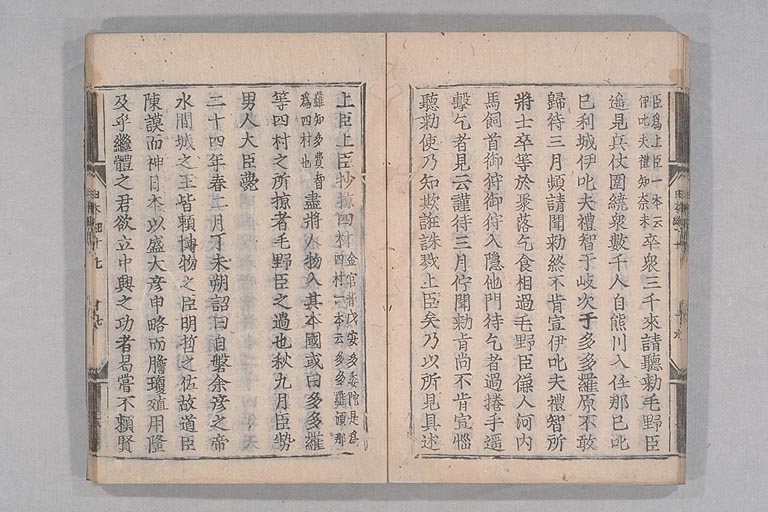 臣爲上臣一本云
伊叱夫禮知奈末
卒衆三千來請聽勅毛野臣
遥見兵仗圍繞衆數千人自熊川入任那已叱
已利城伊叱夫禮智于岐次于多多羅原不敢
歸待三月頻請聞勅終不肯宣伊叱夫禮智所
將士卒等於聚落乞食相過毛野臣傔人河内
馬飼首御狩御狩入隱他門待乞者過捲手遥
擊乞者見云謹待三月佇聞勅肯尚不肯宣惱
聽勅使乃知欺誑誅戮上臣矣乃以所見具述
上臣上臣抄掠四村
金官背戊安多委陀是爲
四村一本云多多羅須那
羅知多費智
爲四村也
盡將人物入其本國或曰多多羅
等四村之所掠者毛野臣之過也秋九月臣勢
男人大臣薨
二十四年春二月丁未朔詔曰自磐余彦之帝
水間城之王皆頼博物之臣明哲之佐故道臣
陳謨而神日本以盛大彦申略而膽瓊殖用隆
及乎繼體之君欲立中興之功者曷嘗不頼賢
日本紀十七